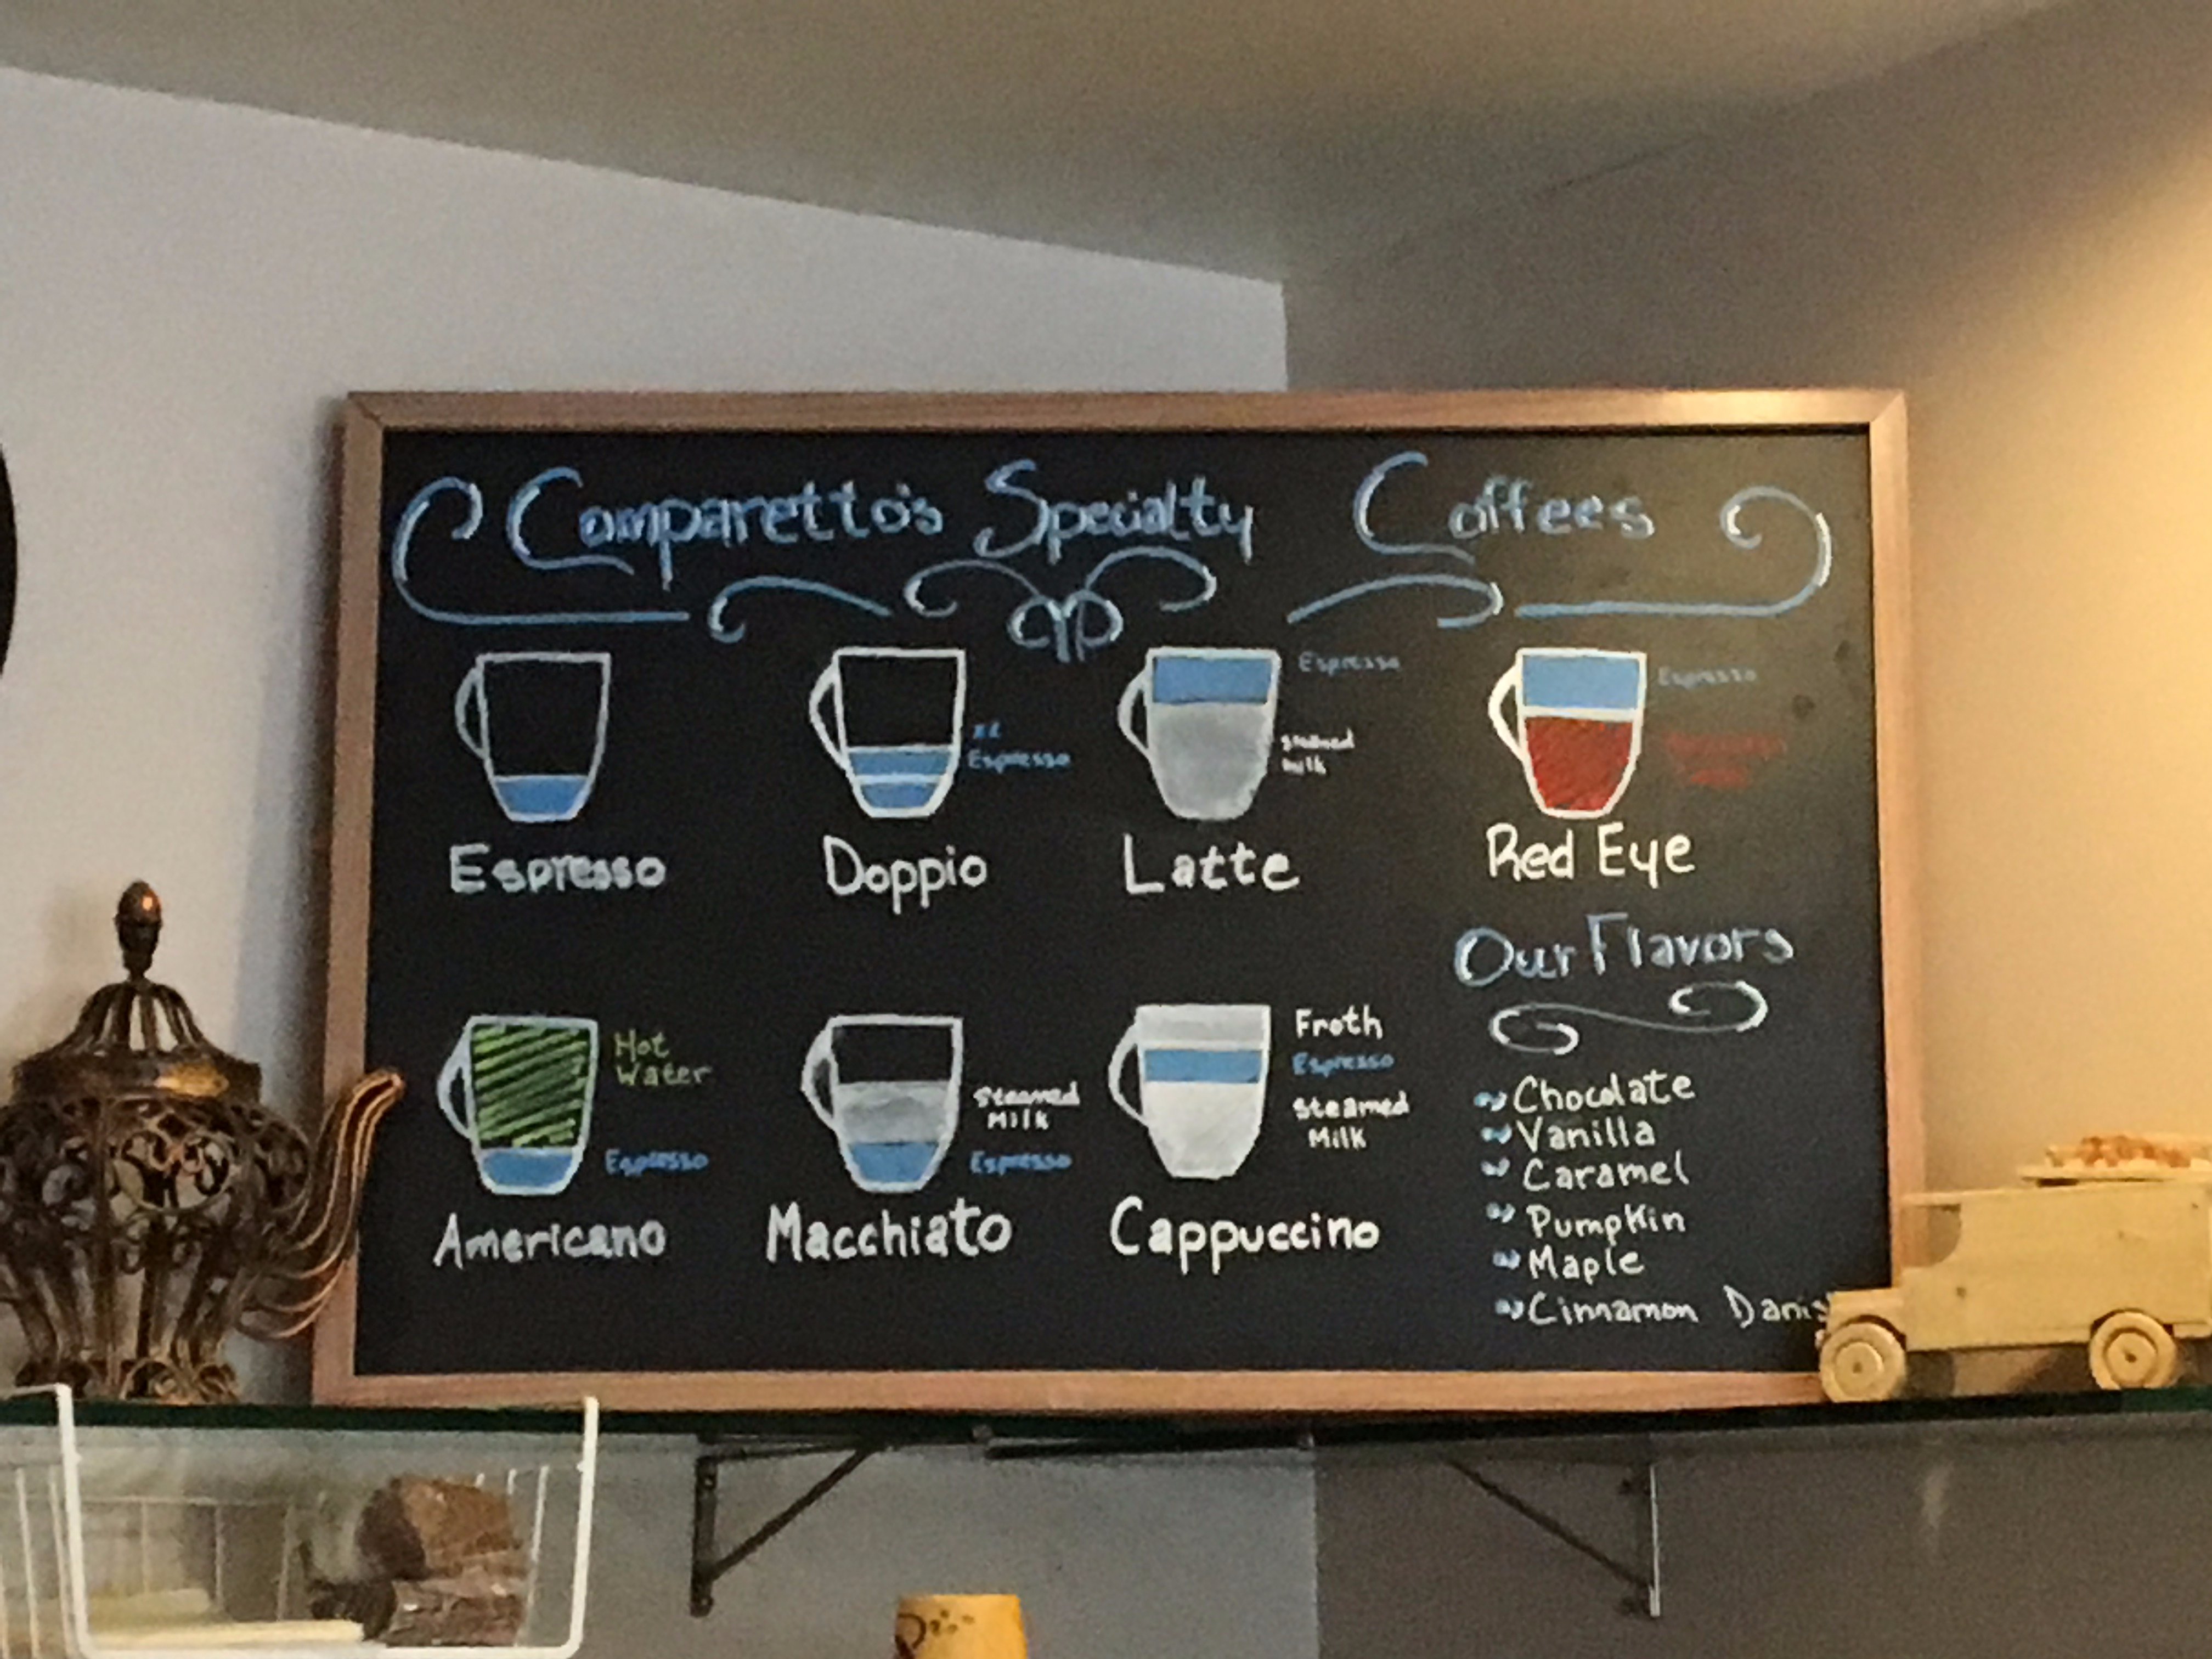 Comparetto's Specialty Coffees
Espresso
x2
Espresso
Doppio
Espresso
Steamed
Milk
Latte
Espresso
Red Eye
Hot
Water
Espresso
Americano
Steamed
Milk
Espresso
Macchiato
Froth
Espresso
Steamed
Milk
Cappuccino
Our Flavors
Chocolate
Vanilla
Caramel
Pumpkin
Maple
Cinnamon Danis